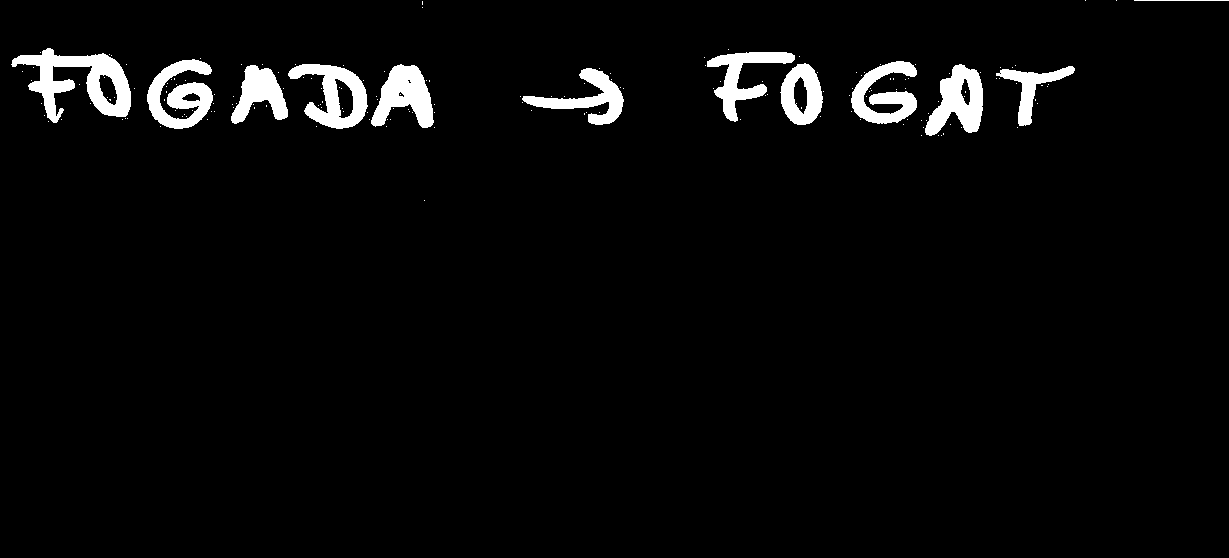 FOGADA → FOGAT